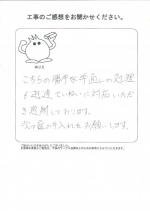 工事のご感想をお聞かせください。
こちらの勝手な手直しの処理
も迅速ていねいに対応いただ
き感謝しております。
次の庭の手入れもお願いします。